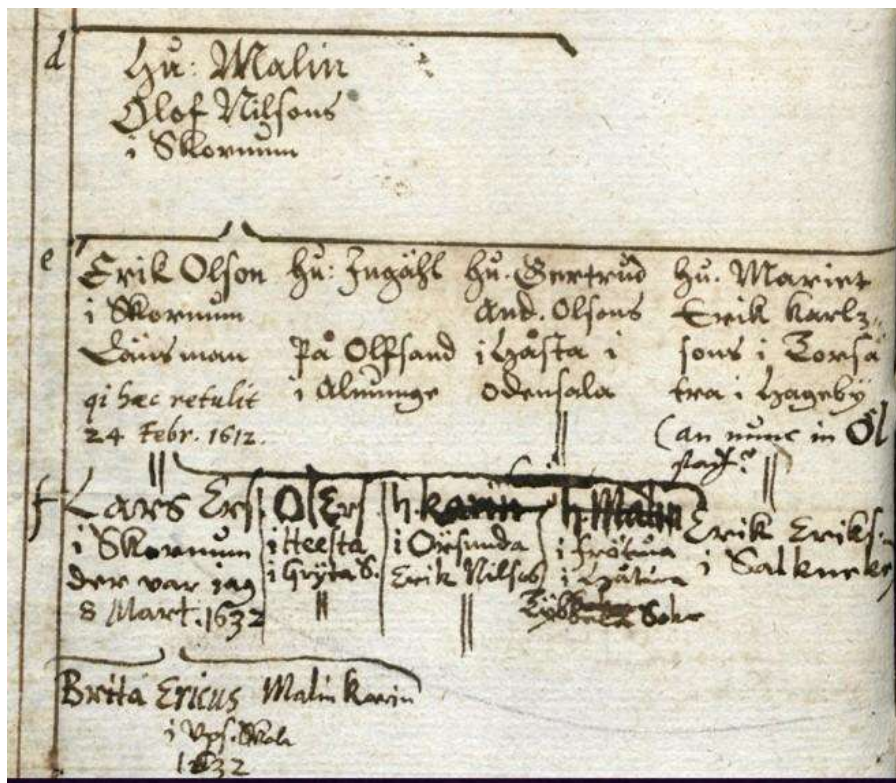 d
hu: Malin
Olof Nilsons
i Skornum
e
Erik Olson
i Skornum
Länsman
qi hæc retulit
24 Febr. 1612.
hu: Ingähl
På Olfsand
i Almunge
hu. Gertrud
And. Olsons
i Håsta i
Odensala
hu. Mariet
Erik Karlz
sons i Torså
tra i Hageby
(an nunc in Öl
stad?
f
Lars Ers.
i Skornum
der var jag
8 Mart. 1632
Ol Ers.
i Heesta
i Gryta S.
h. Karin
i Örsunda
Erik Nilsos
h. Malin
i Frötuna
i Håtuna
Sokn
Erik Eriks.
i Salknek
Brita Ericus Malin Karin
i Ups. Skole
1632